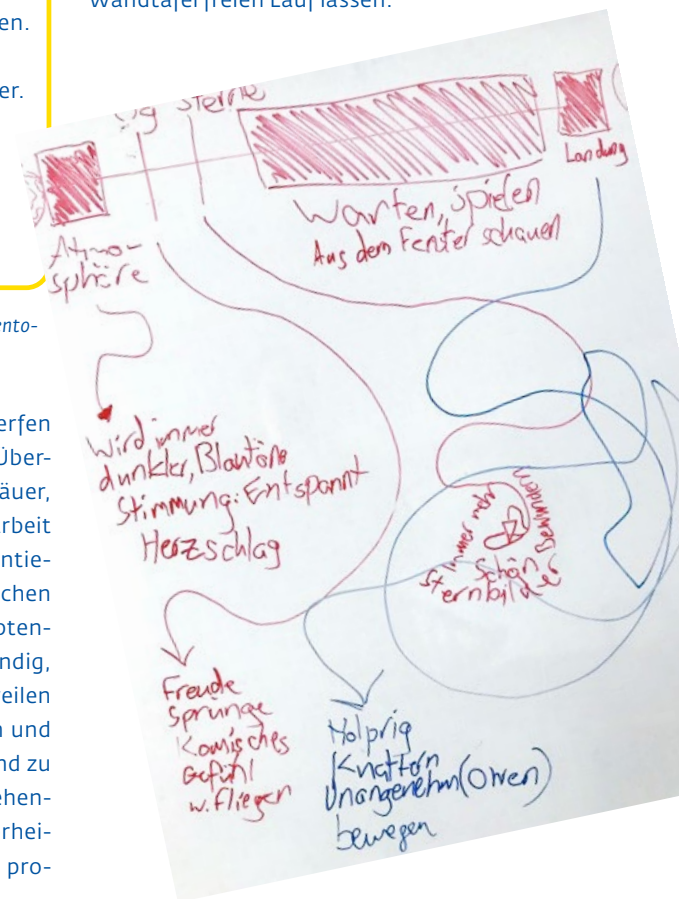 en.
er.
Wandtafel freien Lauf lassen.
ento-
erfen
Über-
äuer,
rbeit
ntie-
chen
oten-
ndig,
eilen
und
nd zu
ehen-
rhei-
pro-
Sterne
Landung
Warten, spielen
Aus dem Fenster schauen
Atmo-
sphäre
Wird immer
dunkler, Blautöne
Stimmung: Entspannt
Herzschlag
immer mehr
Schön
Sternbilder
Freude
Sprünge
Komisches
Gefühl
w. fliegen
Holprig
Knattern
Unangenehm (Ohren)
bewegen